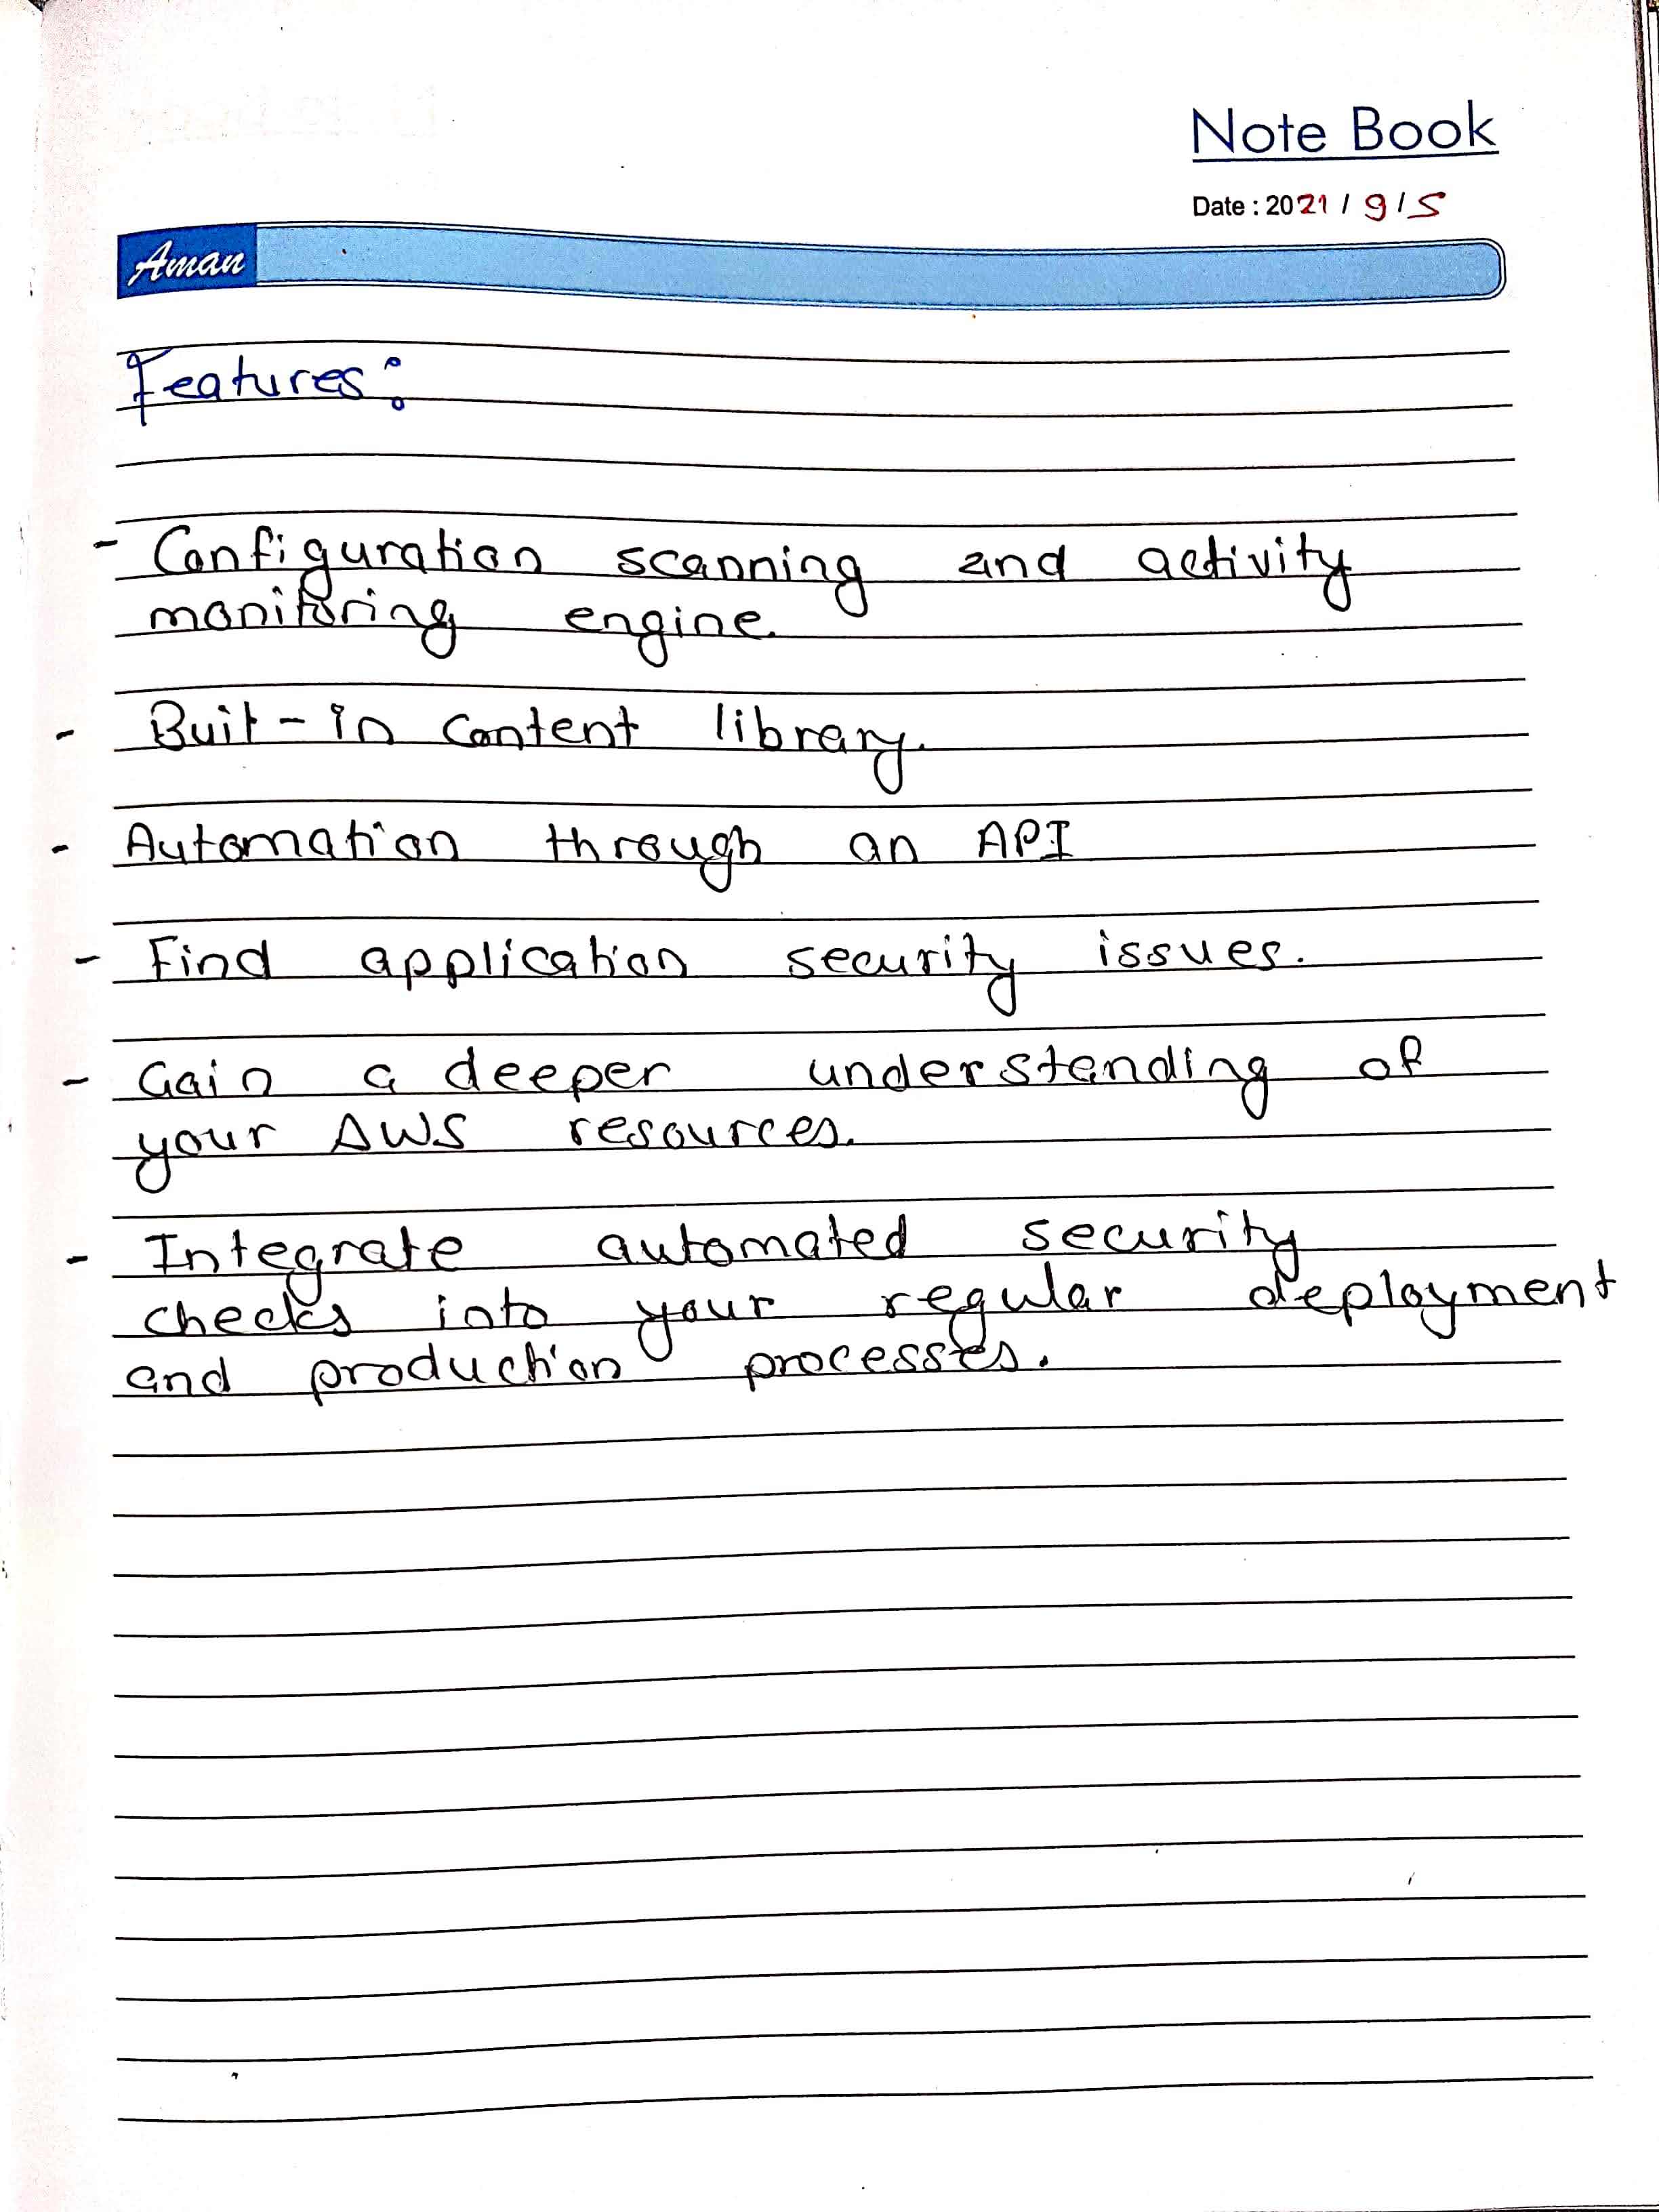 Note Book
Date : 2021 / 9 / 5
Aman
Features:
- Configuration scanning and activity
monitoring engine.
- Buit-in content library.
- Automation through an API
- Find application security issues.
- Gain a deeper understanding of
your AWS resources.
- Integrate automated security
checks into your regular deployment
and production processes.